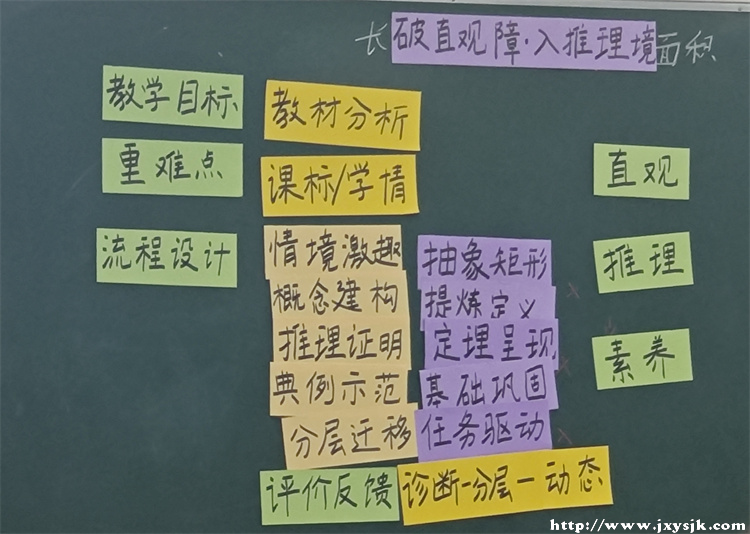 长 破直观障·入推理境 面积
教学目标 教材分析
重难点 课标/学情 直观
流程设计 情境激趣 抽象矩形 推理
概念建构 提炼定义
推理证明 定理呈现 素养
典例示范 基础巩固
分层迁移 任务驱动
评价反馈 诊断-分层-动态
http://www.jxysjk.com